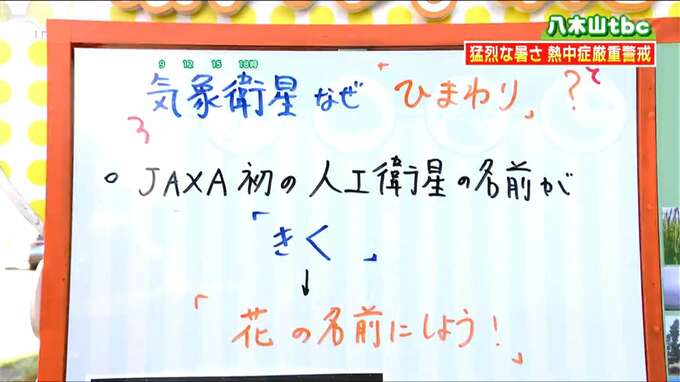 八木山tbc
猛烈な暑さ 熱中症厳重警戒
9 12 15 18時
気象衛星なぜ「ひまわり」?
3
○ JAXA初の人工衛星の名前が
「きく」
↓
「花の名前にしよう!」